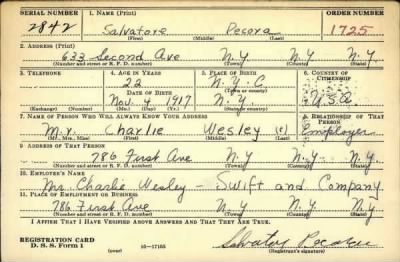 SERIAL NUMBER 1. NAME (Print) ORDER NUMBER
2842 Salvatore Pecora 1725
(First) (Middle) (Last)
2. ADDRESS (Print)
633 Second Ave N.Y N.Y N.Y.
(Number and street or R. F. D. number) (Town) (County) (State)
3. TELEPHONE 4. AGE IN YEARS 5. PLACE OF BIRTH 6. COUNTRY OF CITIZENSHIP
22 N.Y.C.
DATE OF BIRTH (Town or county)
Nov. 4 1917 N.Y. U.S.A
(Exchange) (Number) (Mo.) (Day) (Yr.) (State or country)
7. NAME OF PERSON WHO WILL ALWAYS KNOW YOUR ADDRESS 8. RELATIONSHIP OF THAT PERSON
Mr. Charlie Wesley Employer
(Mr., Mrs., Miss) (First) (Middle) (Last)
9. ADDRESS OF THAT PERSON
786 First Ave N.Y N.Y. N.Y.
(Number and street or R. F. D. number) (Town) (County) (State)
10. EMPLOYER'S NAME
Mr. Charlie Wesley - Swift and Company
11. PLACE OF EMPLOYMENT OR BUSINESS
786 First Ave N.Y N.Y. N.Y.
(Number and street or R. F. D. number) (Town) (County) (State)
I AFFIRM THAT I HAVE VERIFIED ABOVE ANSWERS AND THAT THEY ARE TRUE.
REGISTRATION CARD
D. S. S. FORM 1 (over) 16-17105 (Registrant's signature)